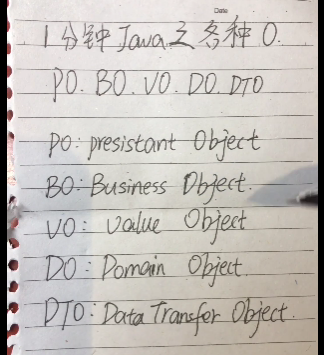 Date
1分钟Java之各种O.
PO. BO. VO. DO. DTO
PO: presistant Object
BO: Business Object.
VO: Value Object
DO: Domain Object
DTO: Data Transfer Object.